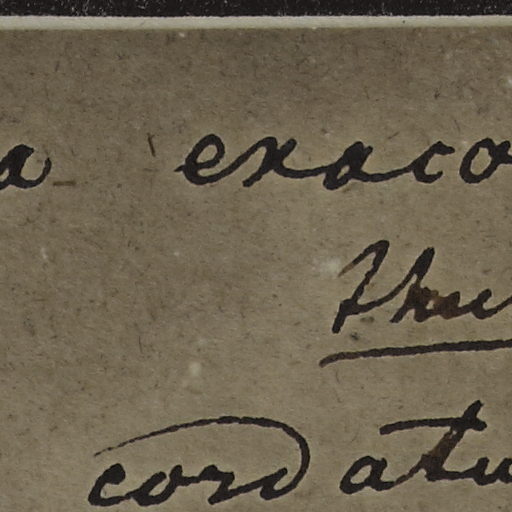 a exaco
thu
cordatu